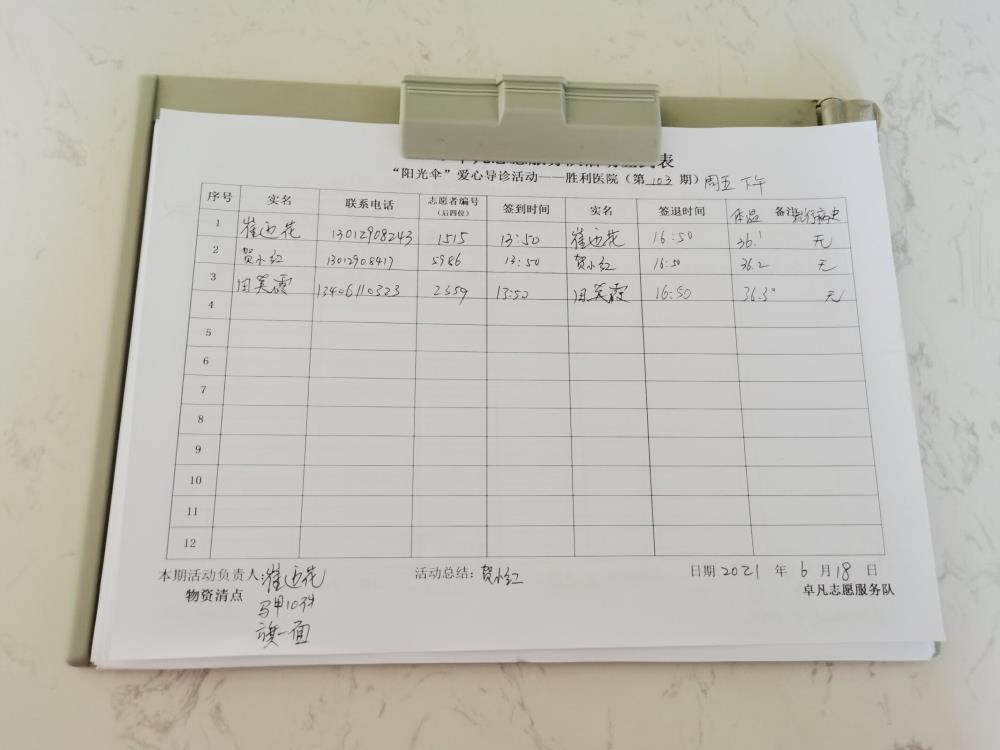 卓凡志愿服务队活动签到表
“阳光伞”爱心导诊活动——胜利医院（第 103 期）周五下午
序号 实名 联系电话 志愿者编号（后四位） 签到时间 实名 签退时间 体温 备注 流行病史
1 崔迎花 13012908243 1515 13:50 崔迎花 16:50 36.1 无
2 贺小红 13012908417 5986 13:50 贺小红 16:50 36.2 无
3 田芙霞 13406110323 2359 13:50 田芙霞 16:50 36.3° 无
4
5
6
7
8
9
10
11
12
本期活动负责人:崔迎花 活动总结:贺小红 日期 2021 年 6 月 18 日
物资清点 卓凡志愿服务队
马甲10件
旗一面